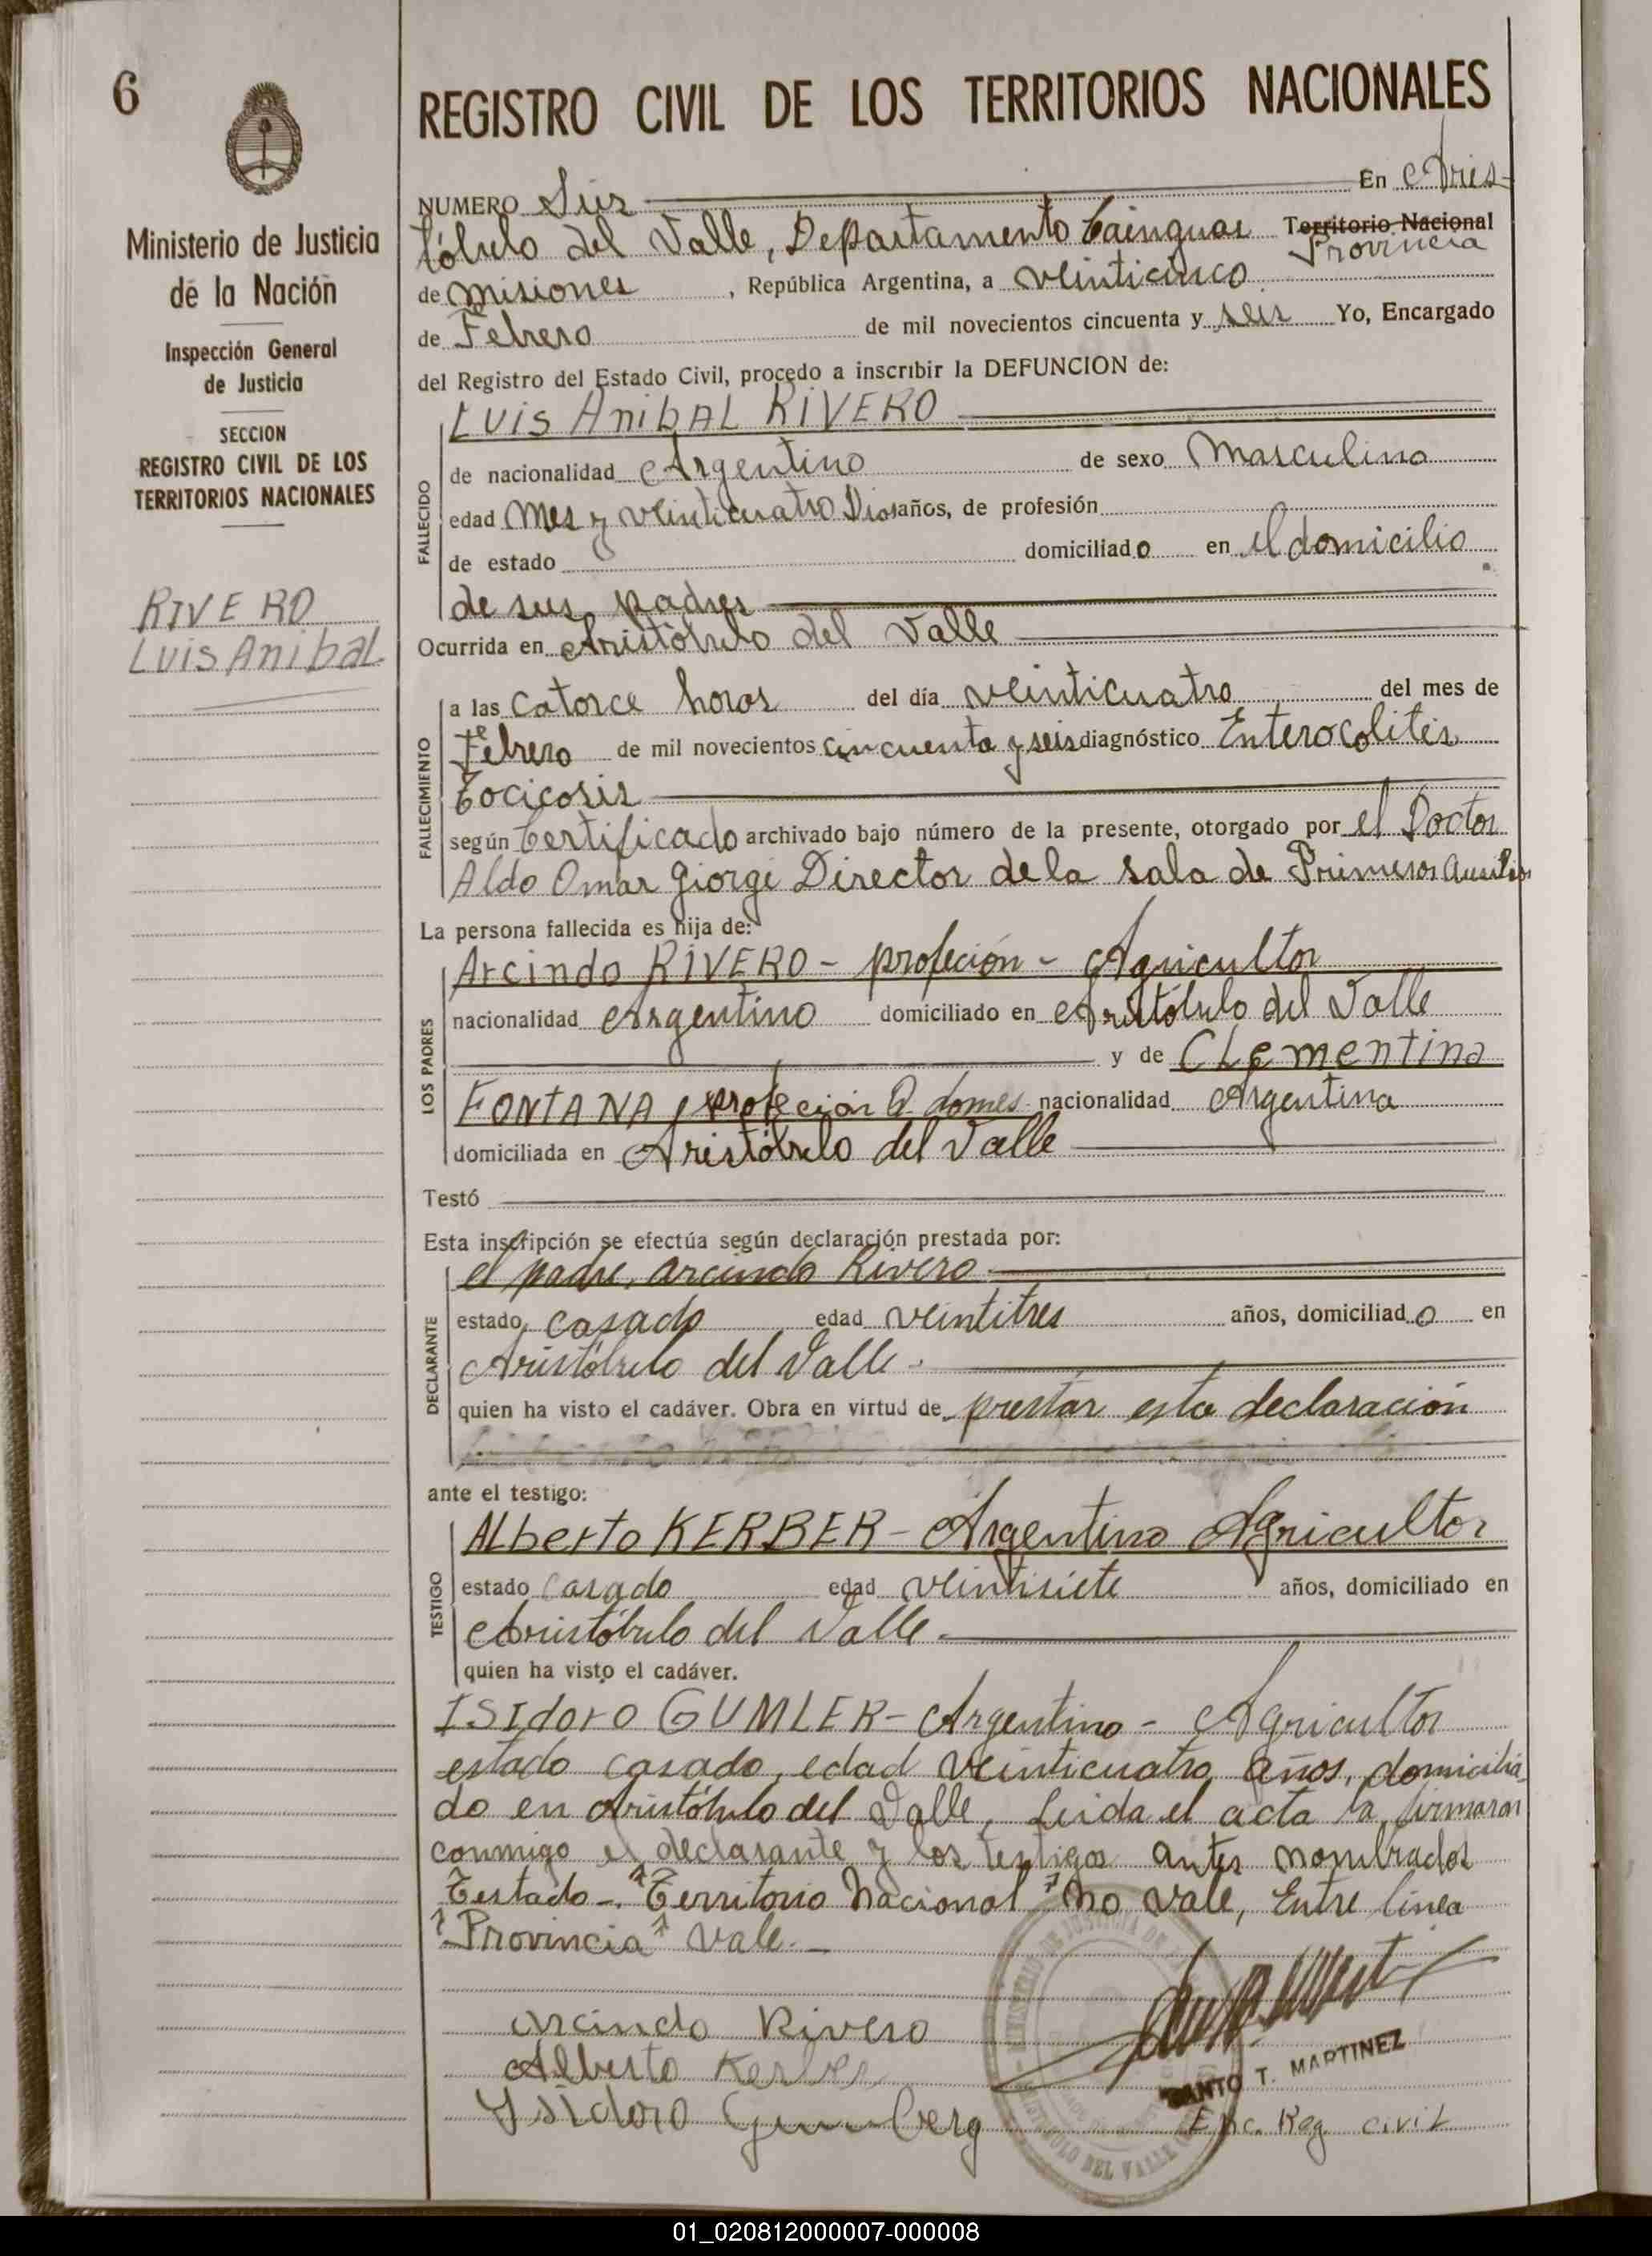 6
Ministerio de Justicia
de la Nación
Inspección General
de Justicia
SECCION
REGISTRO CIVIL DE LOS
TERRITORIOS NACIONALES
RIVERO
Luis Anibal
REGISTRO CIVIL DE LOS TERRITORIOS NACIONALES
NUMERO Seis En Aris-
tóbulo del Valle, Departamento Cainguas Territorio Nacional
Provincia
de Misiones, República Argentina, a veinticinco
de Febrero de mil novecientos cincuenta y seis Yo, Encargado
del Registro del Estado Civil, procedo a inscribir la DEFUNCION de:
Luis Anibal RIVERO
FALLECIDO
de nacionalidad Argentino de sexo Masculino
edad Mes y veinticuatro Dias años, de profesión
de estado domiciliado en el domicilio
de sus padres
Ocurrida en Aristóbulo del Valle
FALLECIMIENTO
a las catorce horas del día veinticuatro del mes de
Febrero de mil novecientos cincuenta y seis diagnóstico Enterocolitis
Tocicosis
según Certificado archivado bajo número de la presente, otorgado por el Doctor
Aldo Omar Giorgi Director de la sala de Primeros Auxilios
La persona fallecida es hija de:
LOS PADRES
Arcindo RIVERO - profeción - Agricultor
nacionalidad Argentino domiciliado en Aristóbulo del Valle
y de CLementina
FONTANA, profeción Q. domes. nacionalidad Argentina
domiciliada en Aristóbulo del Valle
Testó
Esta inscripción se efectúa según declaración prestada por:
DECLARANTE
el padre, Arcindo Rivero
estado casado edad veintitres años, domiciliado en
Aristóbulo del Valle.
quien ha visto el cadáver. Obra en virtud de prestar esta declaración
ante el testigo:
TESTIGO
Alberto KERBER - Argentino Agricultor
estado casado edad veintisiete años, domiciliado en
Aristóbulo del Valle.
quien ha visto el cadáver.
Isidoro GUMLER - Argentino - Agricultor
estado casado, edad veinticuatro años, domicilia-
do en Aristóbulo del Valle, Leida el acta la firmaron
conmigo el declarante y los testigos antes nombrados
Testado - "Territorio Nacional" No vale, Entre linea
"Provincia" Vale. -
Arcindo Rivero
Alberto Kerber
Ysidoro
SANTO T. MARTINEZ
Enc. Reg. civil
01_020812000007-000008